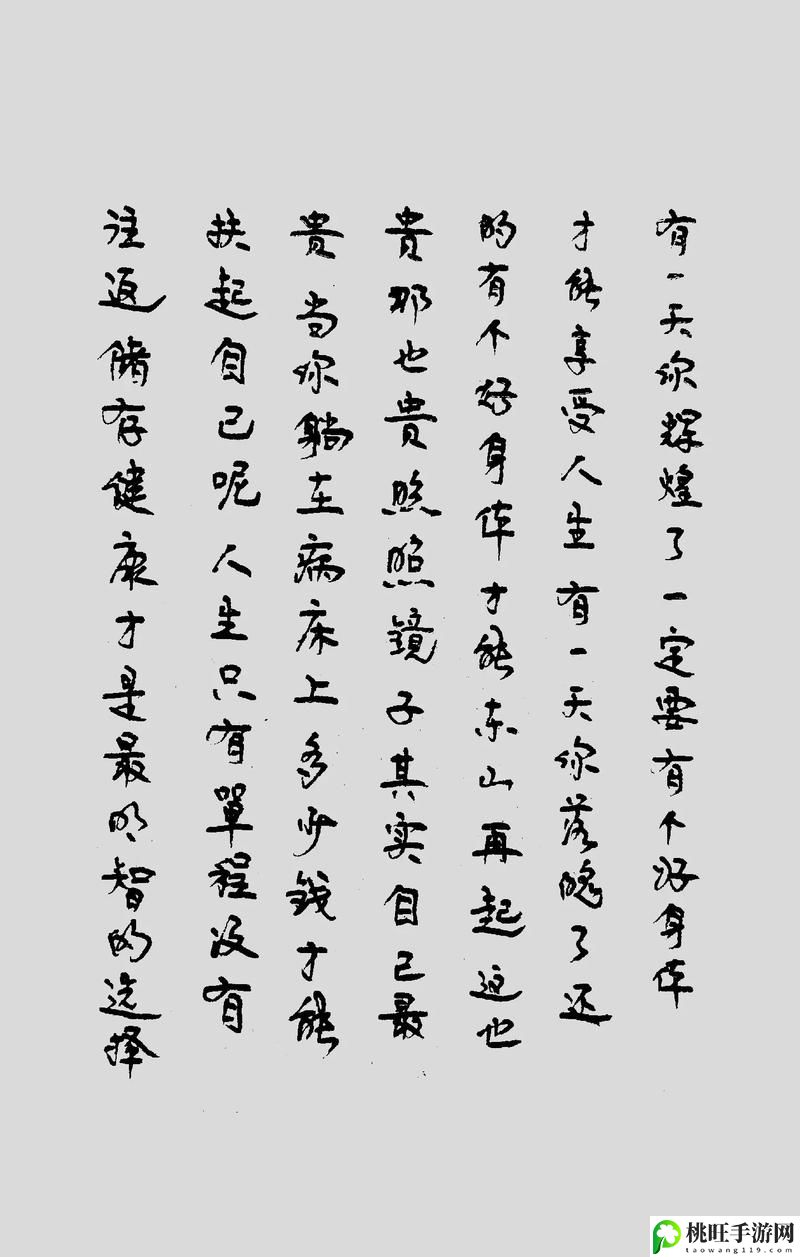 有一天你辉煌了一定要有个好身体
才能享受人生有一天你落魄了还
的有个好身体才能东山再起这也
贵那也贵照照镜子其实自己最
贵当你躺在病床上多少钱才能
扶起自己呢人生只有單程没有
往返储存健康才是最明智的选择
桃旺手游网
taowang119.com